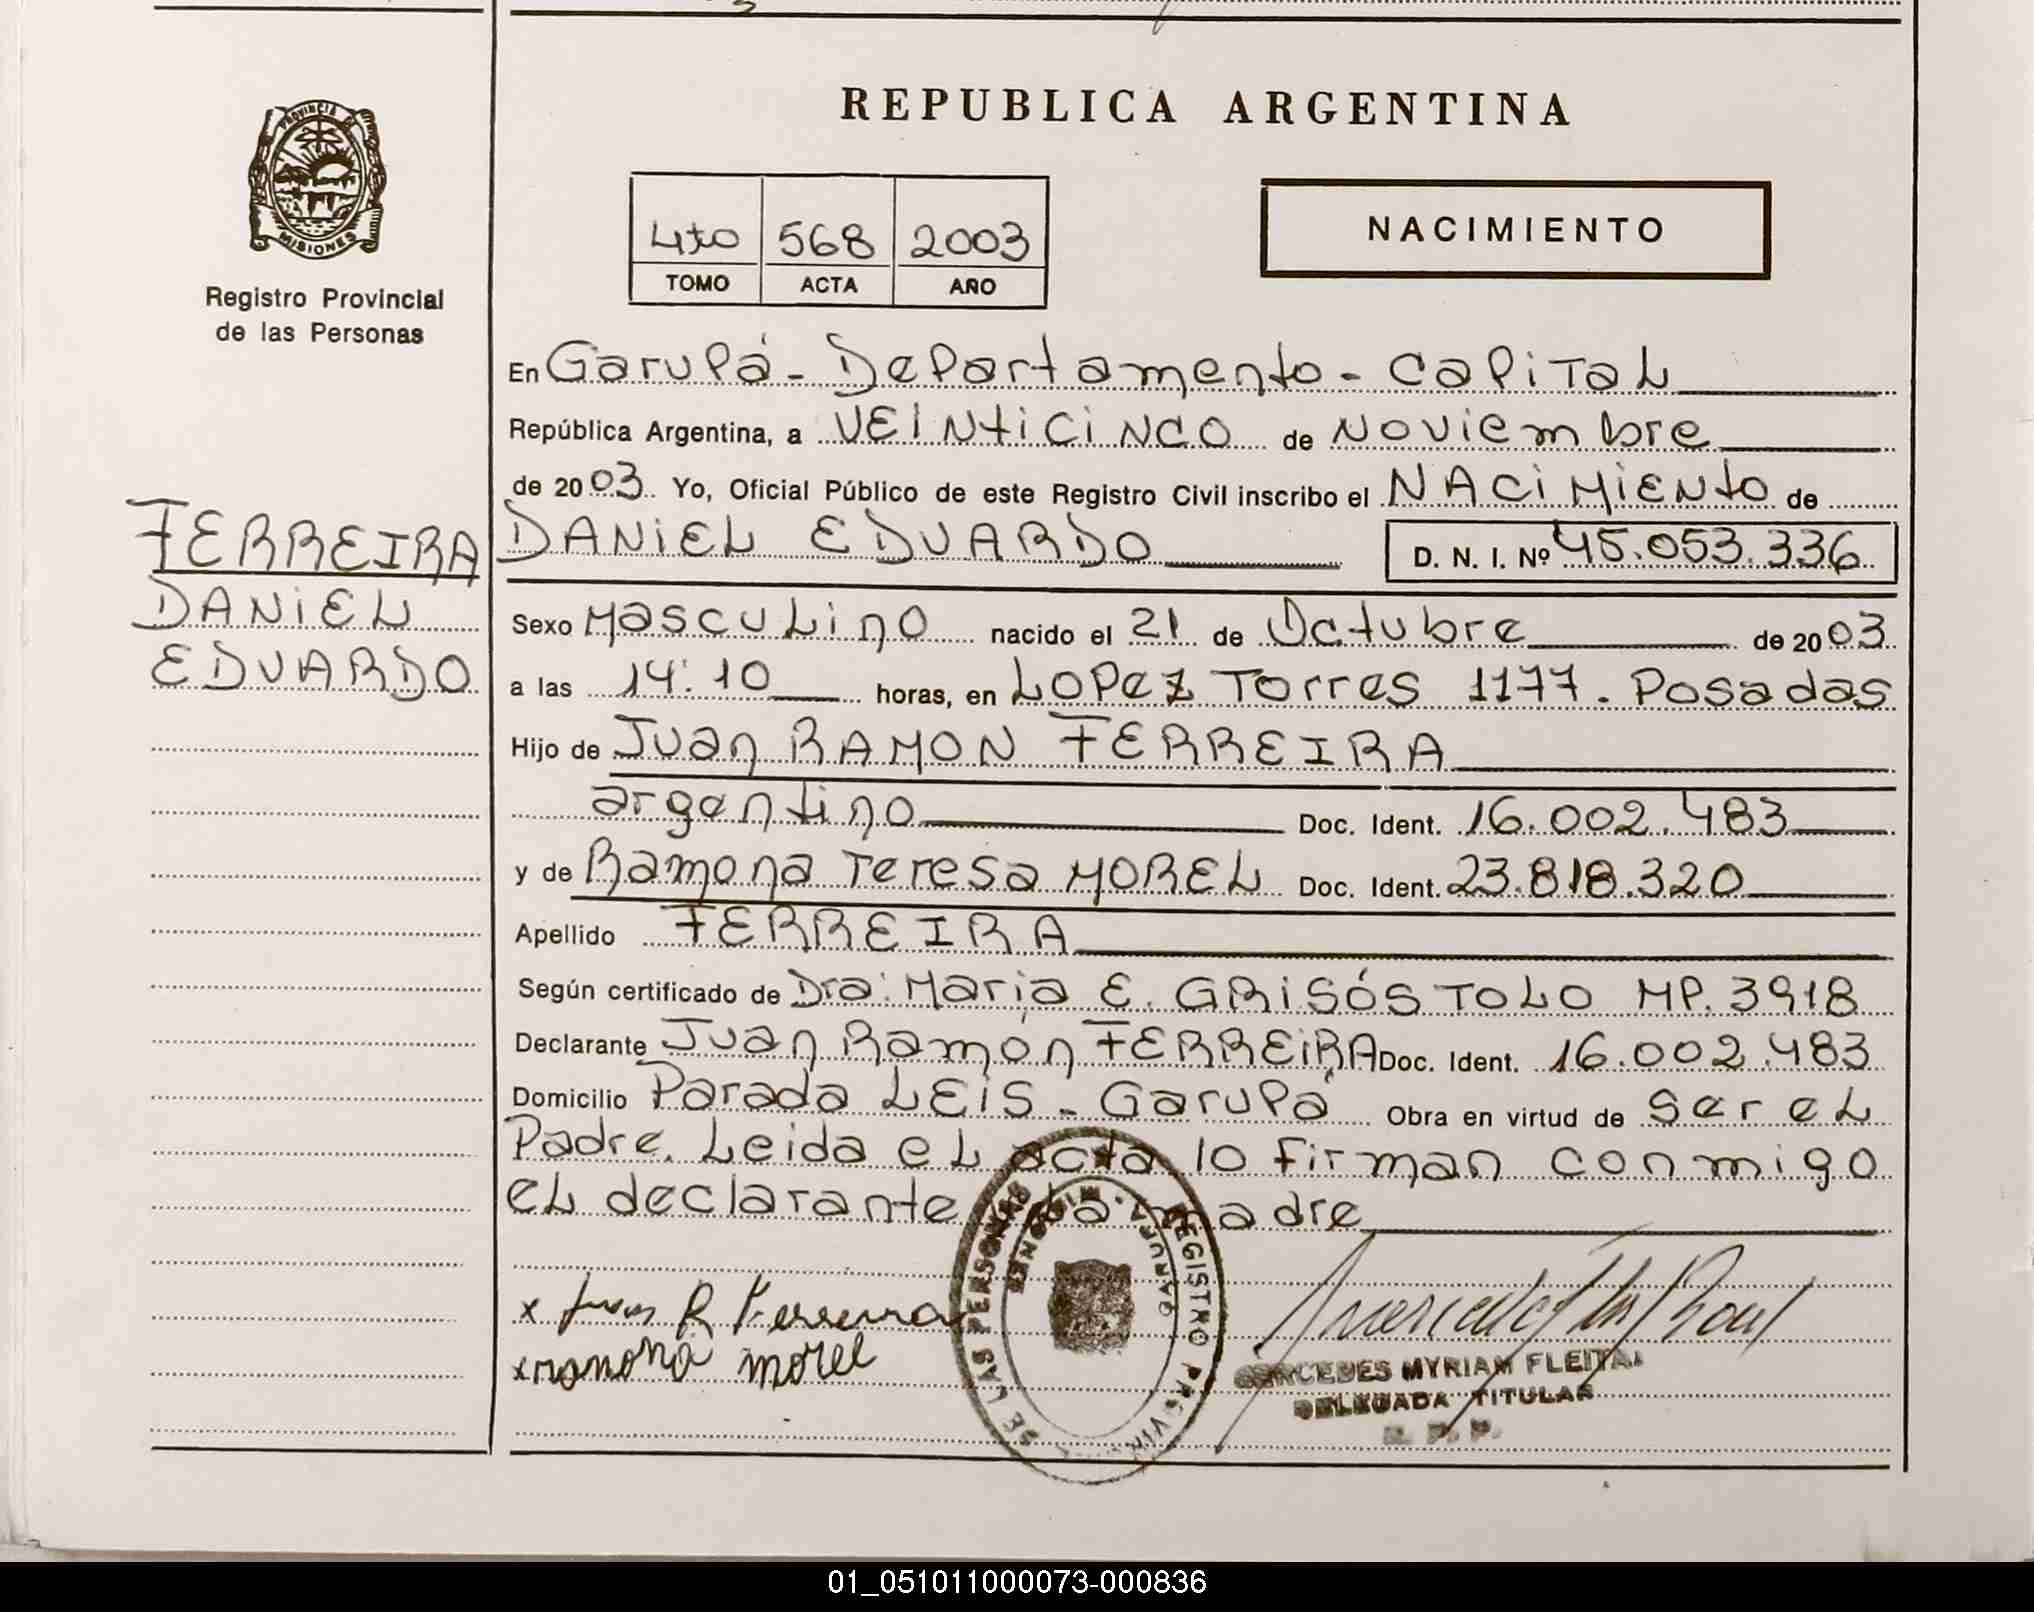 REPUBLICA ARGENTINA
PROVINCIA DE
MISIONES
Registro Provincial
de las Personas
4to 568 2003
TOMO ACTA AÑO
NACIMIENTO
En Garupá - Departamento - Capital
República Argentina, a VEINTICINCO de Noviembre
de 2003. Yo, Oficial Público de este Registro Civil inscribo el NACIMIENTO de
FERREIRA
DANIEL
EDUARDO
DANIEL EDUARDO D. N. I. Nº 45.053.336
Sexo Masculino nacido el 21 de Octubre de 2003
a las 14:10 horas, en LOPEZ Torres 1177. Posadas
Hijo de Juan RAMON FERREIRA
argentino Doc. Ident. 16.002.483
y de Ramona Teresa MOREL Doc. Ident. 23.818.320
Apellido FERREIRA
Según certificado de Dra: Maria E. GRISÓSTOLO MP. 3918
Declarante Juan Ramón FERREIRA Doc. Ident. 16.002.483
Domicilio Parada LEIS - Garupá Obra en virtud de ser el
Padre. Leida el acta lo firman conmigo
el declarante la madre
x Juan R Ferreira
x ramona morel
REGISTRO DE LAS PERSONAS
GARUPA - MISIONES
MYRIAM FLEITAS
DELEGADA TITULAR
R. P. P.
01_051011000073-000836